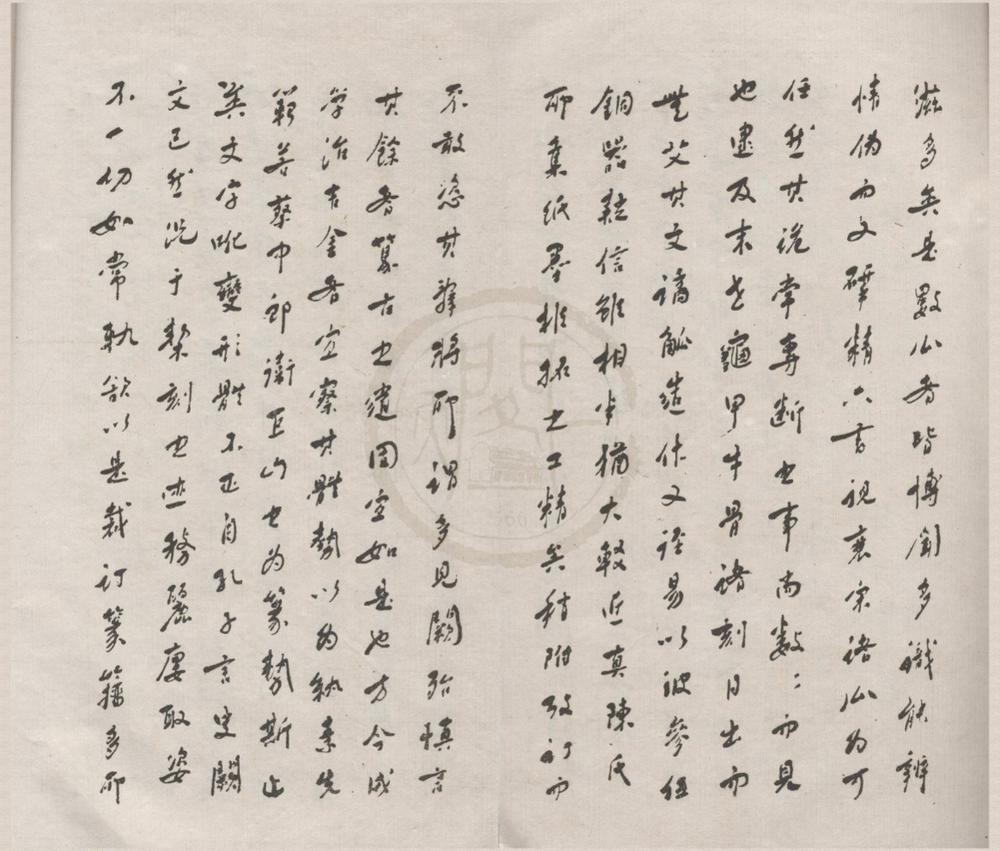 滋多矣是數公者皆博聞多識能辨
情偽而文研精六書視襄宋諸公為可
任然其說常專斷之事尚數數而見
也逮及末世龜甲牛骨諸刻日出而
其文譎觚造作又證易以彼參伍
銅器疑信雖相半猶大較近真陳氏
所集紙墨椎拓之工精矣稍附攷訂而
不敢恣其辭將所謂多見闕殆慎言
其餘者篆古之遺固宜如是也方今成
學治吉金者宜察其體勢以為執素先
範若蔡中郎衛巨山之為篆勢斯止
矣文字吪變形體不正自孔子言史闕
文已然況于契刻之迹務麗廔取姿
不一切如常軌欲以是裁訂篆籀多所